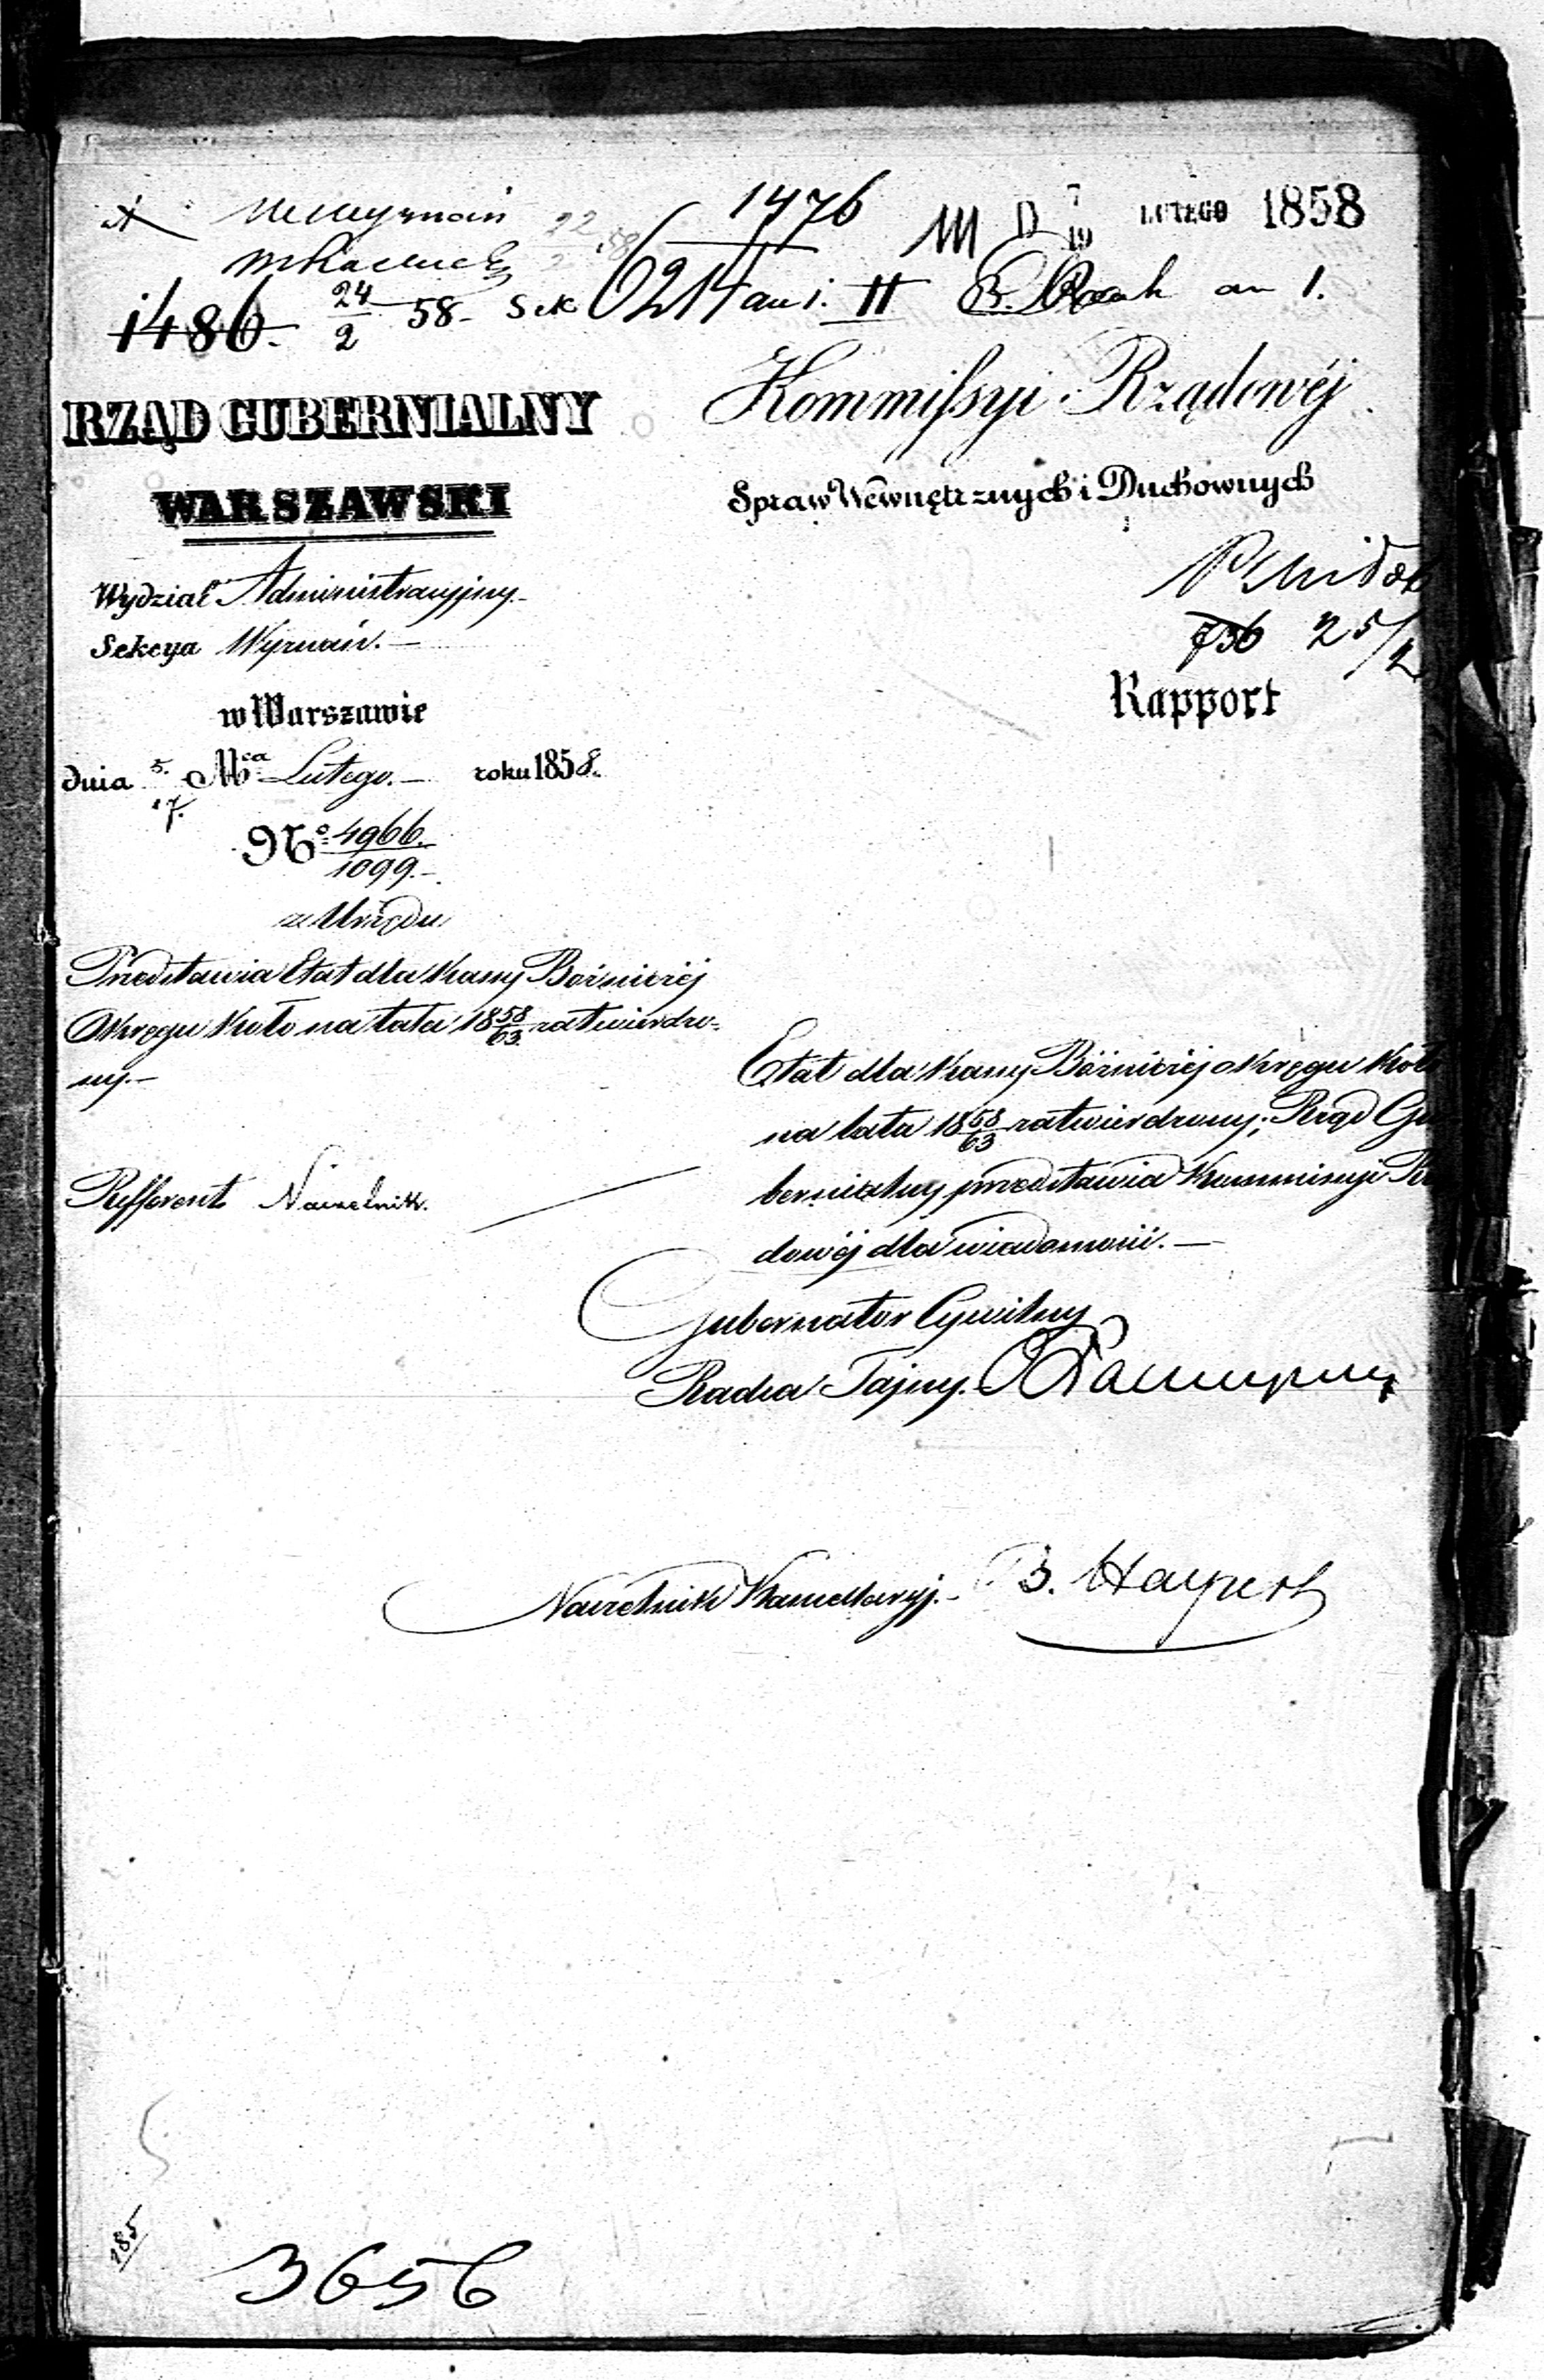 1476
III D 7/19 LUTEGO 1858
1486 24/2 58 6214 an 1. II an 1.
RZĄD GUBERNIALNY
WARSZAWSKI
Wydział Administracyjny.
Sekcya Wyznań.
w Warszawie
dnia 5./17. Mca Lutego. roku 1858.
No 4966./1099.
z Urzędu
Przedstawia Etat dla Kassy Bóżniczéj
Okręgu Koło na lata 1858/63 zatwierdzo=
ny.
Refferent Naczelnik.
Kommissyi Rządowéj
Spraw Wewnętrznych i Duchownych
736 25/2
Rapport
Etat dla Kassy Bóżniczéj Okręgu Koło
na lata 1858/63 zatwierdzony; Rząd Gu
bernialny przedstawia Kommissyi Rzą
dowéj dla wiadomości.
Gubernator Cywilny
Radca Tajny.
Naczelnik Kancellaryj. B. Halpert
285
3656